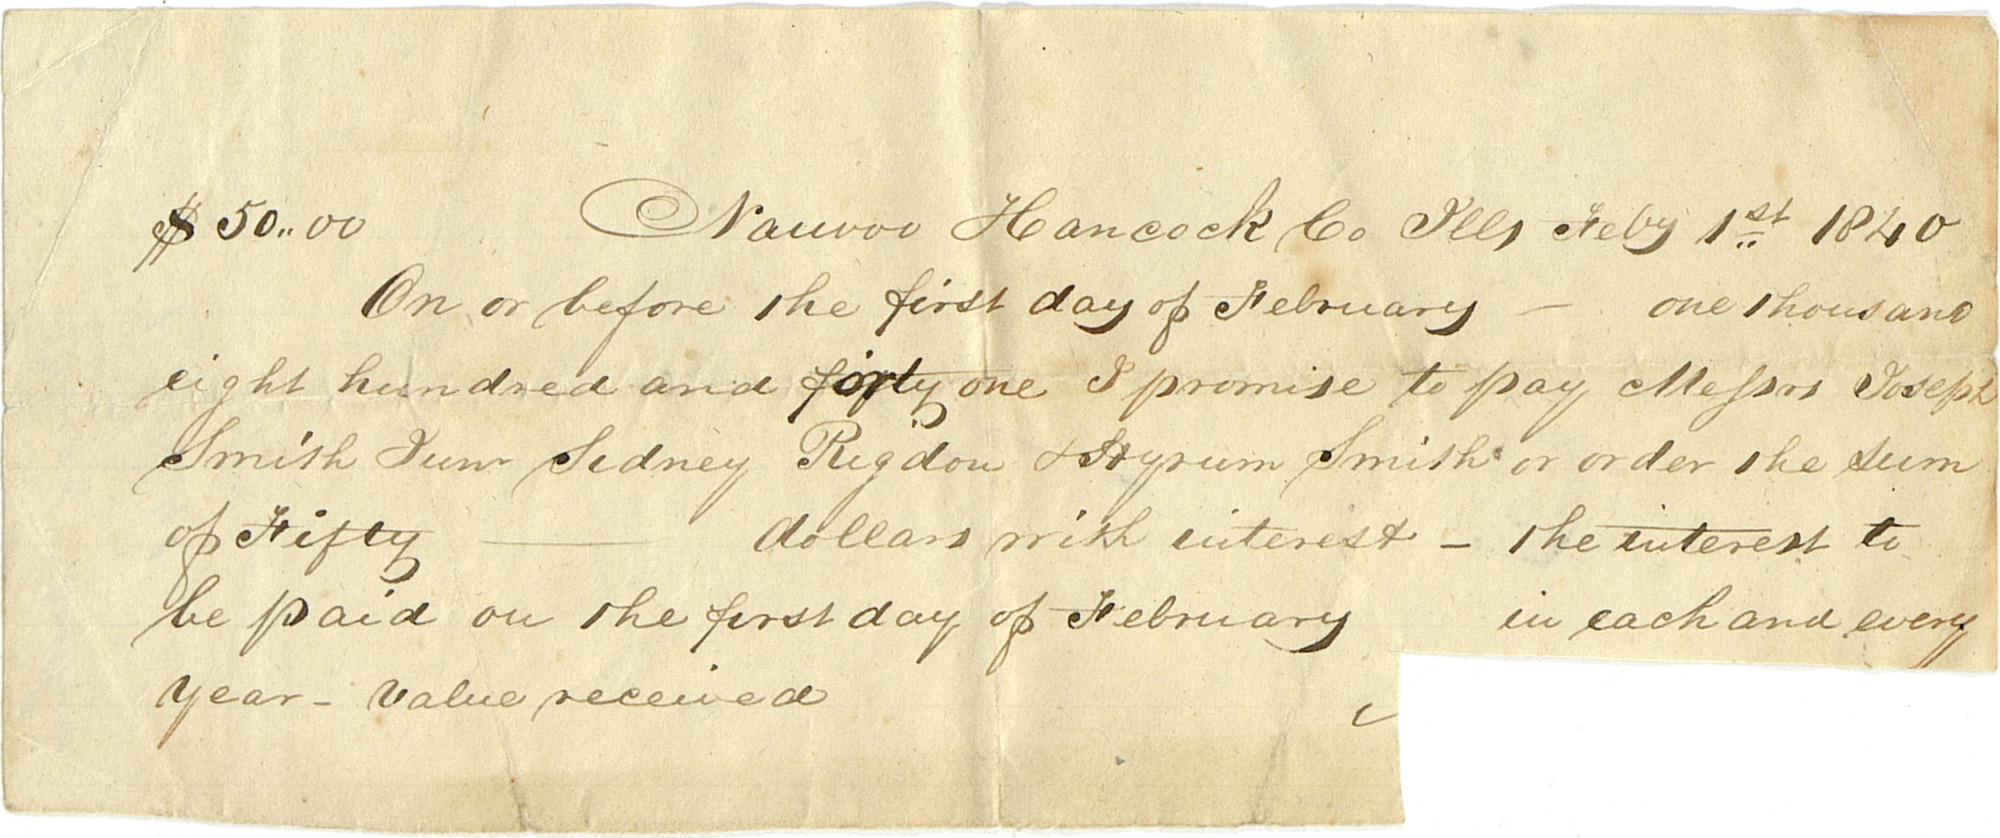 $50..00 Nauvoo Hancock Co Ills Feby 1st 1840
On or before the first day of February — one thousand
eight hundred and forty one I promise to pay Messrs Joseph
Smith Junr Sidney Rigdon & Hyrum Smith or order the sum
of Fifty —— dollars with interest – the interest to
be paid on the first day of February in each and every
year – value received